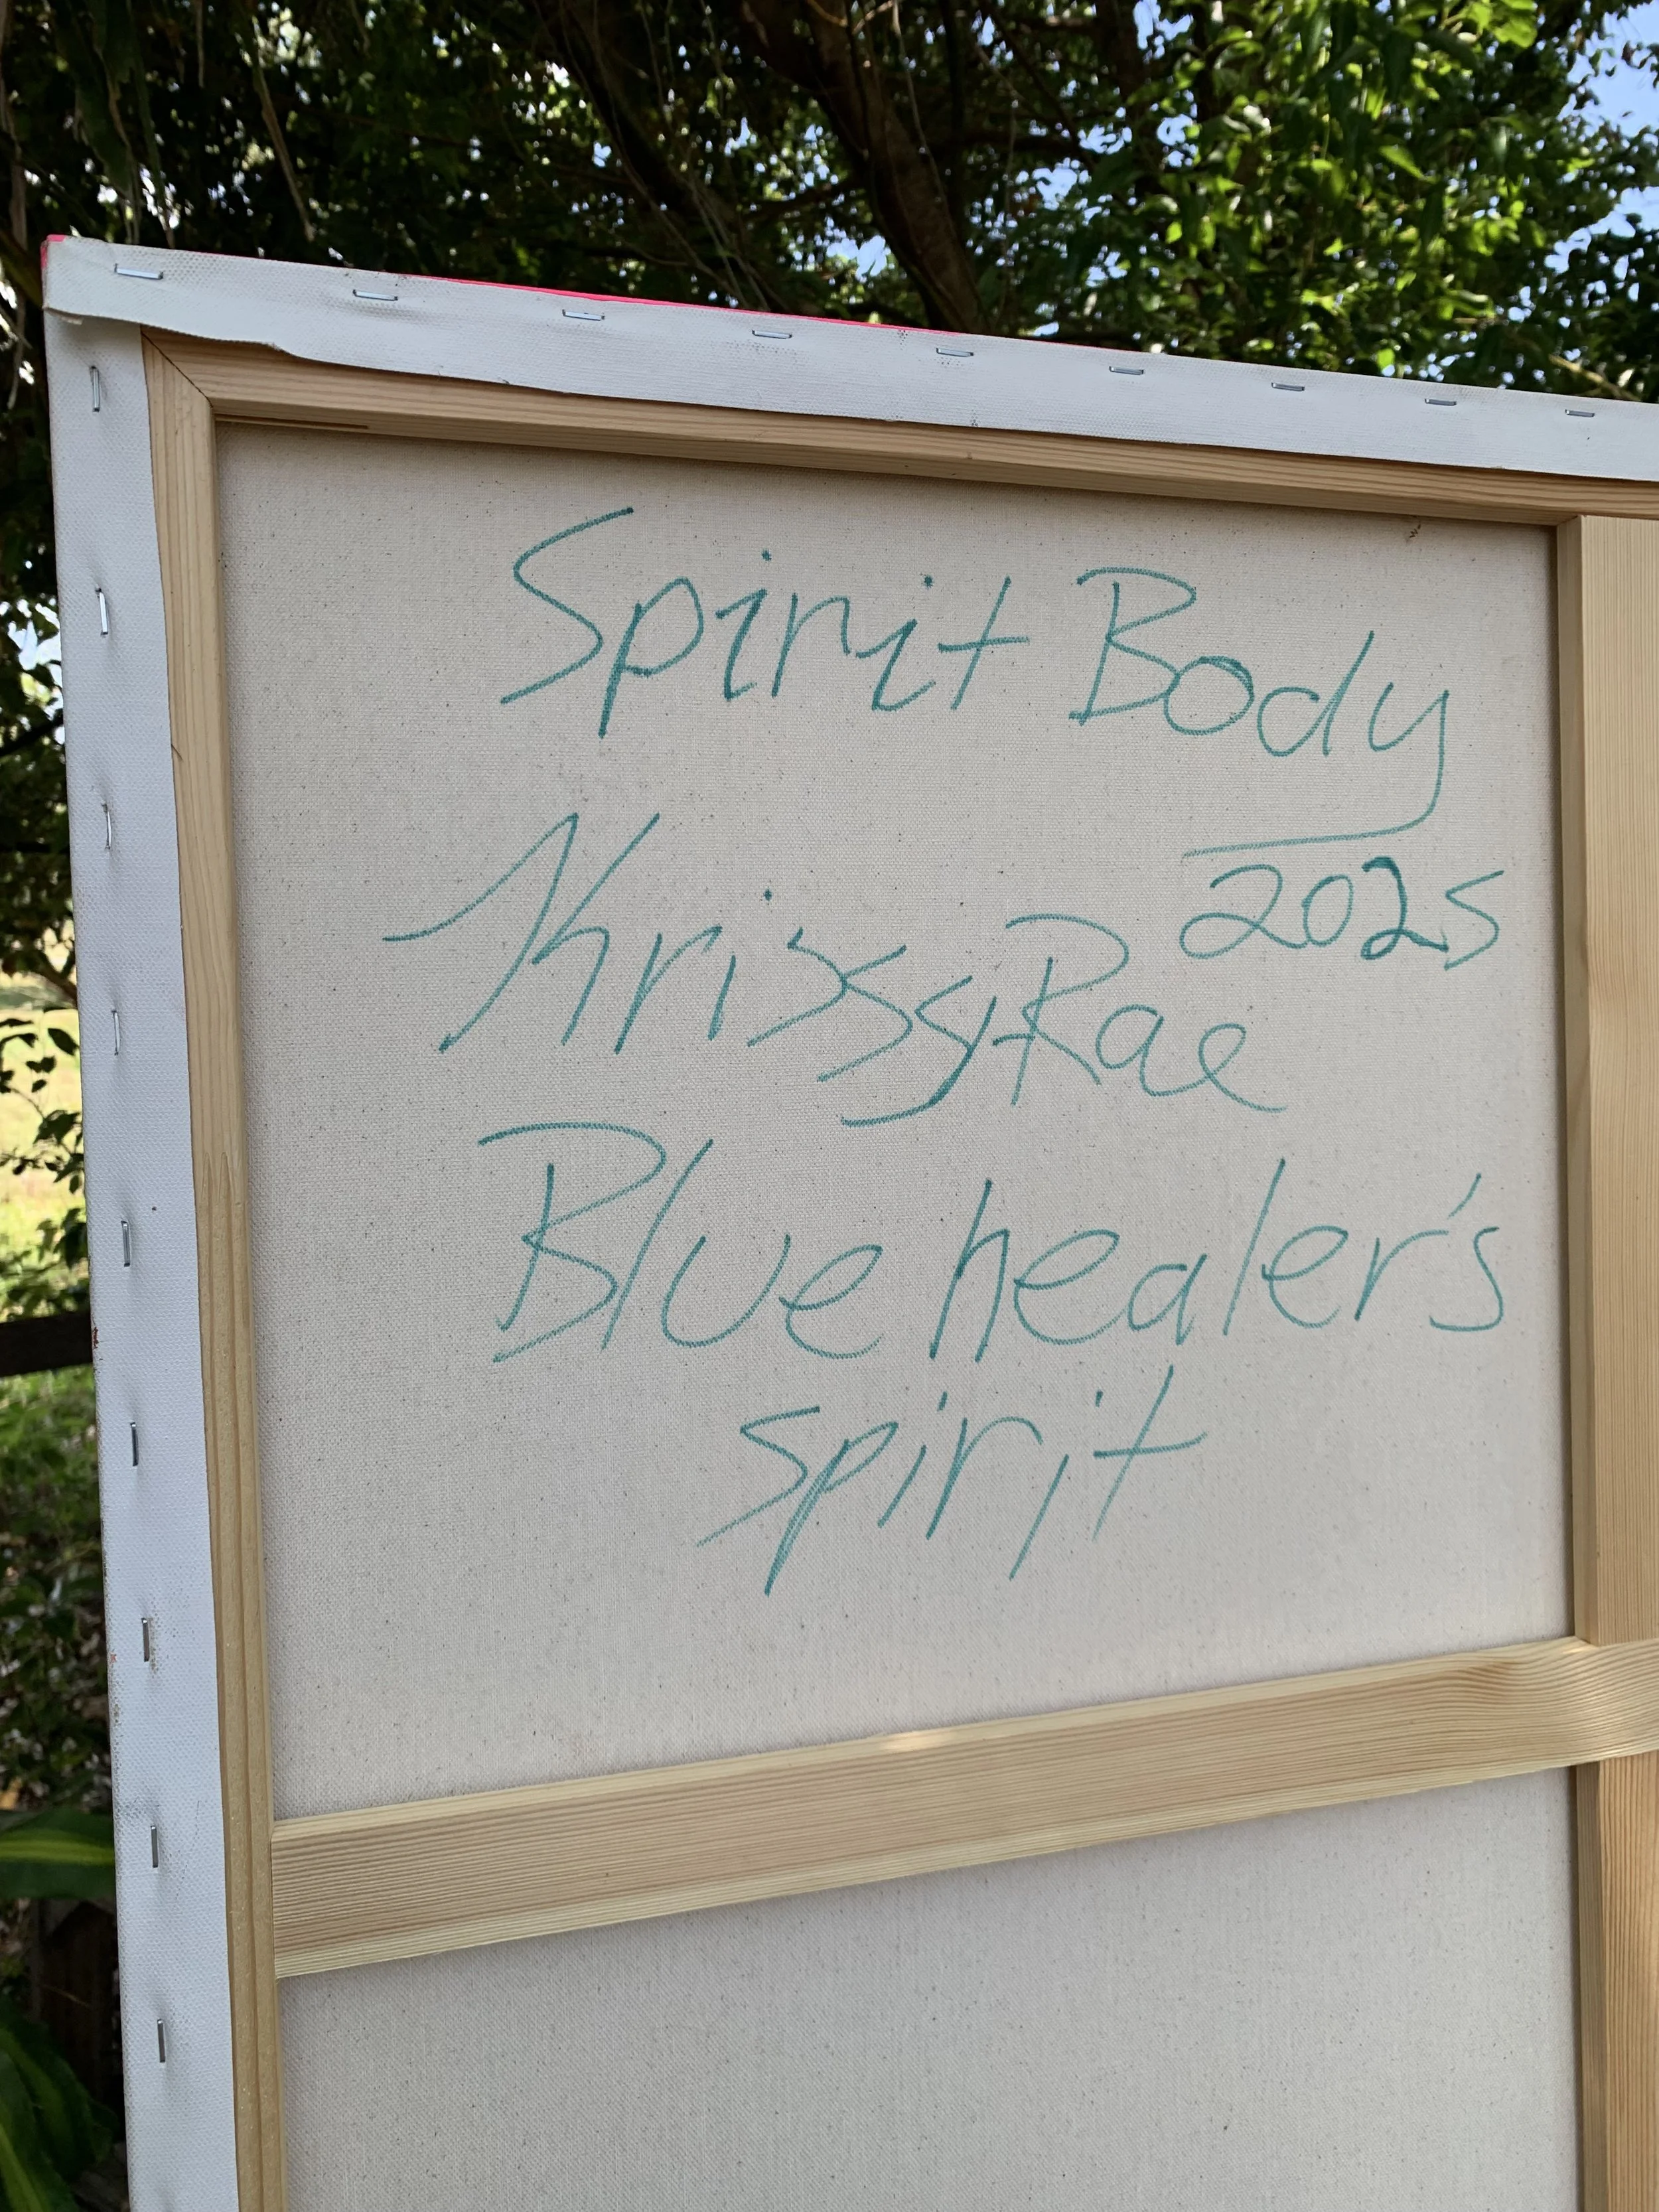 Spirit Body
2025
KrissyRae
Blue healer's
spirit